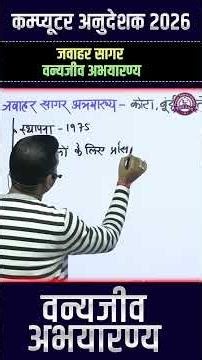 कम्प्यूटर अनुदेशक 2026
जवाहर सागर
वन्यजीव अभयारण्य
जवाहर सागर अभयारण्य - कोटा, बूंदी
स्थापना - 1975
के लिए
वन्यजीव
अभयारण्य